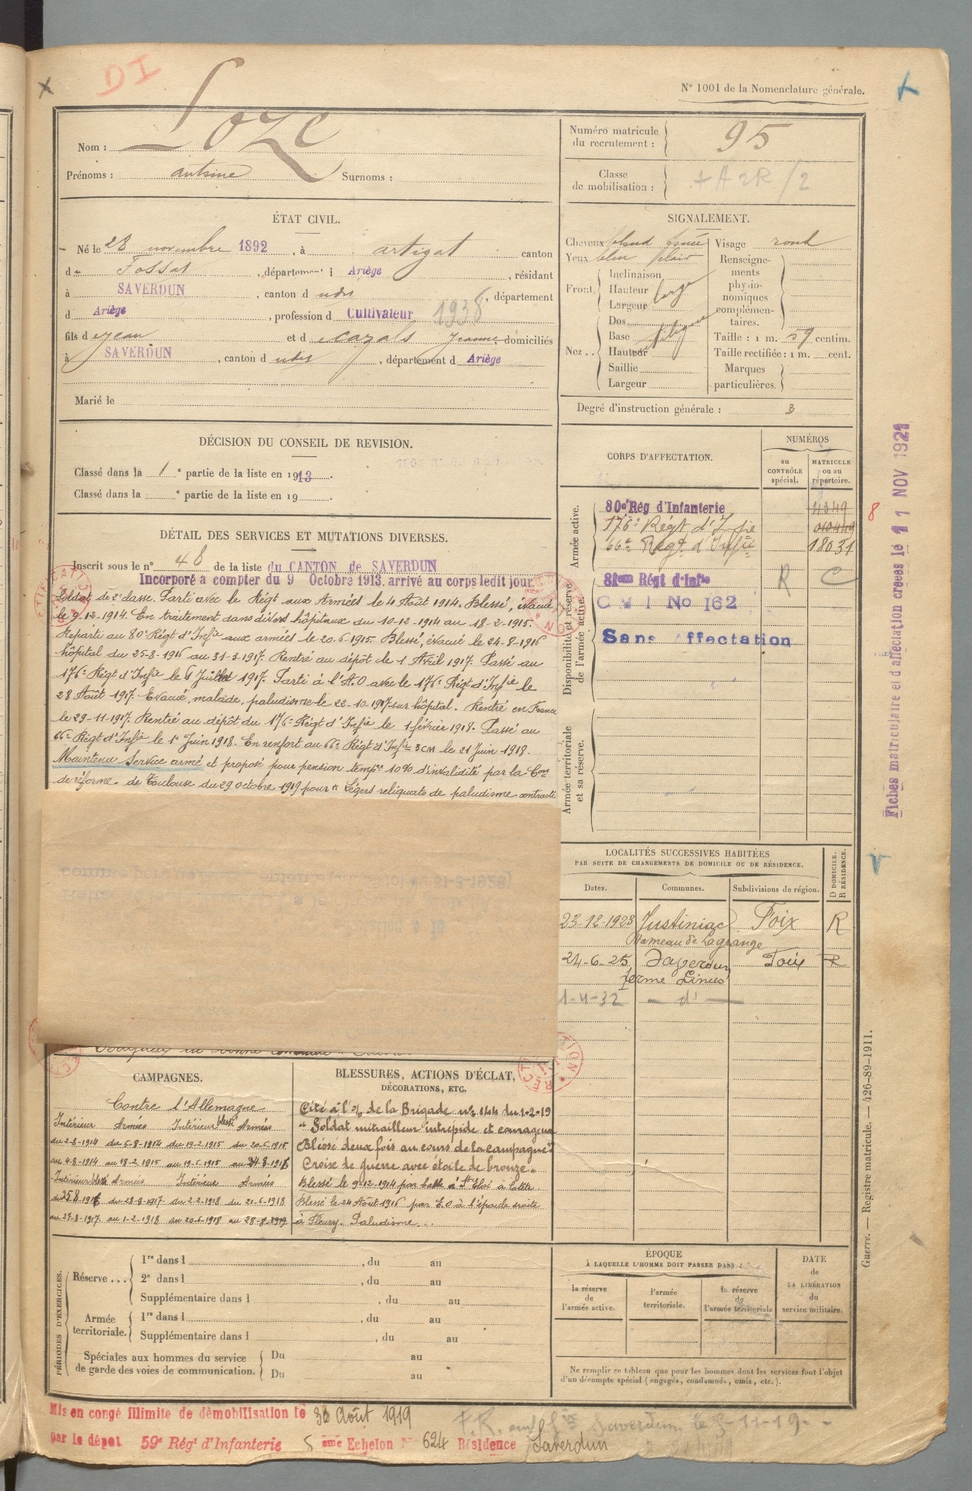 DI
N° 1001 de la Nomenclature générale.
Nom : Loze
Prénoms : antoine Surnoms :
Numéro matricule du recrutement : 95
Classe de mobilisation :
ÉTAT CIVIL.
Né le 28 novembre 1892, à artigat canton
d Fossat, département Ariège, résidant
à SAVERDUN, canton d udit, département
d Ariège, profession d Cultivateur 1938
fils d e Jean et d e Cazals Jeanne domiciliés
à SAVERDUN, canton d udit, département d Ariège
Marié le
SIGNALEMENT.
Cheveux blond foncé Visage rond
Yeux bleu
Front. Inclinaison
Hauteur large
Largeur
Nez.. Dos
Base
Hauteur
Saillie
Largeur
Renseignements physionomiques complémentaires.
Taille : 1 m. 59 centim.
Taille rectifiée : 1 m. cent.
Marques particulières.
Degré d'instruction générale : 3
DÉCISION DU CONSEIL DE REVISION.
Classé dans la 1e partie de la liste en 1913.
Classé dans la e partie de la liste en 19
CORPS D'AFFECTATION.
NUMÉROS
au CONTRÔLE spécial.
MATRICULE ou au répertoire.
Armée active.
80e Rég d'Infanterie 4249
176e Régt d'Infie
66e Régt d'Infie 18031
Disponibilité et réserve de l'armée active.
81em Régt d'Infie R C
C M I No 162
Sans ffectation
Armée territoriale et sa réserve.
DÉTAIL DES SERVICES ET MUTATIONS DIVERSES.
Inscrit sous le n° 48 de la liste du CANTON de SAVERDUN
Incorporé a compter du 9 Octobre 1913, arrivé au corps ledit jour.
Soldat de 2e classe. Parti avec le Régt aux Armées le 4 Août 1914. Blessé, évacué
le 9-12-1914. En traitement dans divers hôpitaux du 10-12-1914 au 18-2-1915.
Reparti au 80e Régt d'Infie aux armées le 20-6-1915. Blessé, évacué le 24-8-1916
hôpital du 25-8-1916 au 31-3-1917. Rentré au dépôt le 1 Avril 1917. Passé au
176e Régt d'Infie le 6 Juillet 1917. Parti à l'A.O avec le 176e Régt d'Infie le
28 Août 1917. Evacué, malade, paludisme le 22-10-1917 sur hôpital. Rentré en France
le 29-11-1917. Rentré au dépôt du 176e Régt d'Infie le 1 février 1918. Passé au
66e Régt d'Infie le 1er Juin 1918. En renfort au 66e Régt d'Infie 3 CM le 21 Juin 1918.
Maintenu Service armé et proposé pour pension tempre 10% d'invalidité par la Con
de réforme de Toulouse du 29 octobre 1919 pour "Légers reliquats de paludisme contracté
LOCALITÉS SUCCESSIVES HABITÉES
PAR SUITE DE CHANGEMENTS DE DOMICILE OU DE RÉSIDENCE.
Dates. Communes. Subdivisions de région. D DOMICILE. R RÉSIDENCE.
23-12-1923 Justiniac Foix R
hameau de Lagrange
24-6-25 Saverdun Foix R
ferme
1-4-32 — d° —
CAMPAGNES.
Contre l'Allemagne
Intérieur Armées Intérieur blessé Armées
du 2-8-1914 du 5-8-1914 du 19-2-1915 du 20-6-1915
au 4-8-1914 au 18-2-1915 au 19-6-1915 au 24-8-1916
Intérieur blessé Armées Intérieur Armées
du 25-8-1916 du 28-8-1917 du 2-2-1918 du 21-6-1918
au 27-8-1917 au 1-2-1918 au 20-6-1918 au 28-8-1919
BLESSURES, ACTIONS D'ÉCLAT, DÉCORATIONS, ETC.
Cité à l'o/ de la Brigade n° 144 du 1-2-19
"Soldat mitrailleur intrépide et courageux
Blessé deux fois au cours de la campagne"
Croix de guerre avec étoile de bronze.
Blessé le 9-12-1914 par balle à St Eloi à
Blessé le 24 Août 1916 par E.O à l'épaule droite
à Fleury. Paludisme...
PÉRIODES D'EXERCICES.
Réserve... 1re dans l , du au
2e dans l , du au
Supplémentaire dans l , du au
Armée territoriale. 1re dans l , du au
Supplémentaire dans l , du au
Spéciales aux hommes du service de garde des voies de communication. Du au
Du au
ÉPOQUE
À LAQUELLE L'HOMME DOIT PASSER DANS :
la réserve de l'armée active.
l'armée territoriale.
la réserve de l'armée territoriale
DATE de LA LIBÉRATION du service militaire.
Ne remplir ce tableau que pour les hommes dont les services font l'objet
d'un décompte spécial (engagés, condamnés, omis, etc.).
Mis en congé illimité de démobilisation le 30 Août 1919
par le dépôt 59e Rég d'Infanterie 5 ème Echelon N° 624 Résidence Saverdun
Saverdun, le 5-11-19
Fiches matriculaire et d'affectation créées le 11 NOV 1921
8
Guerre. — Registre matricule. — 426-89-1911.